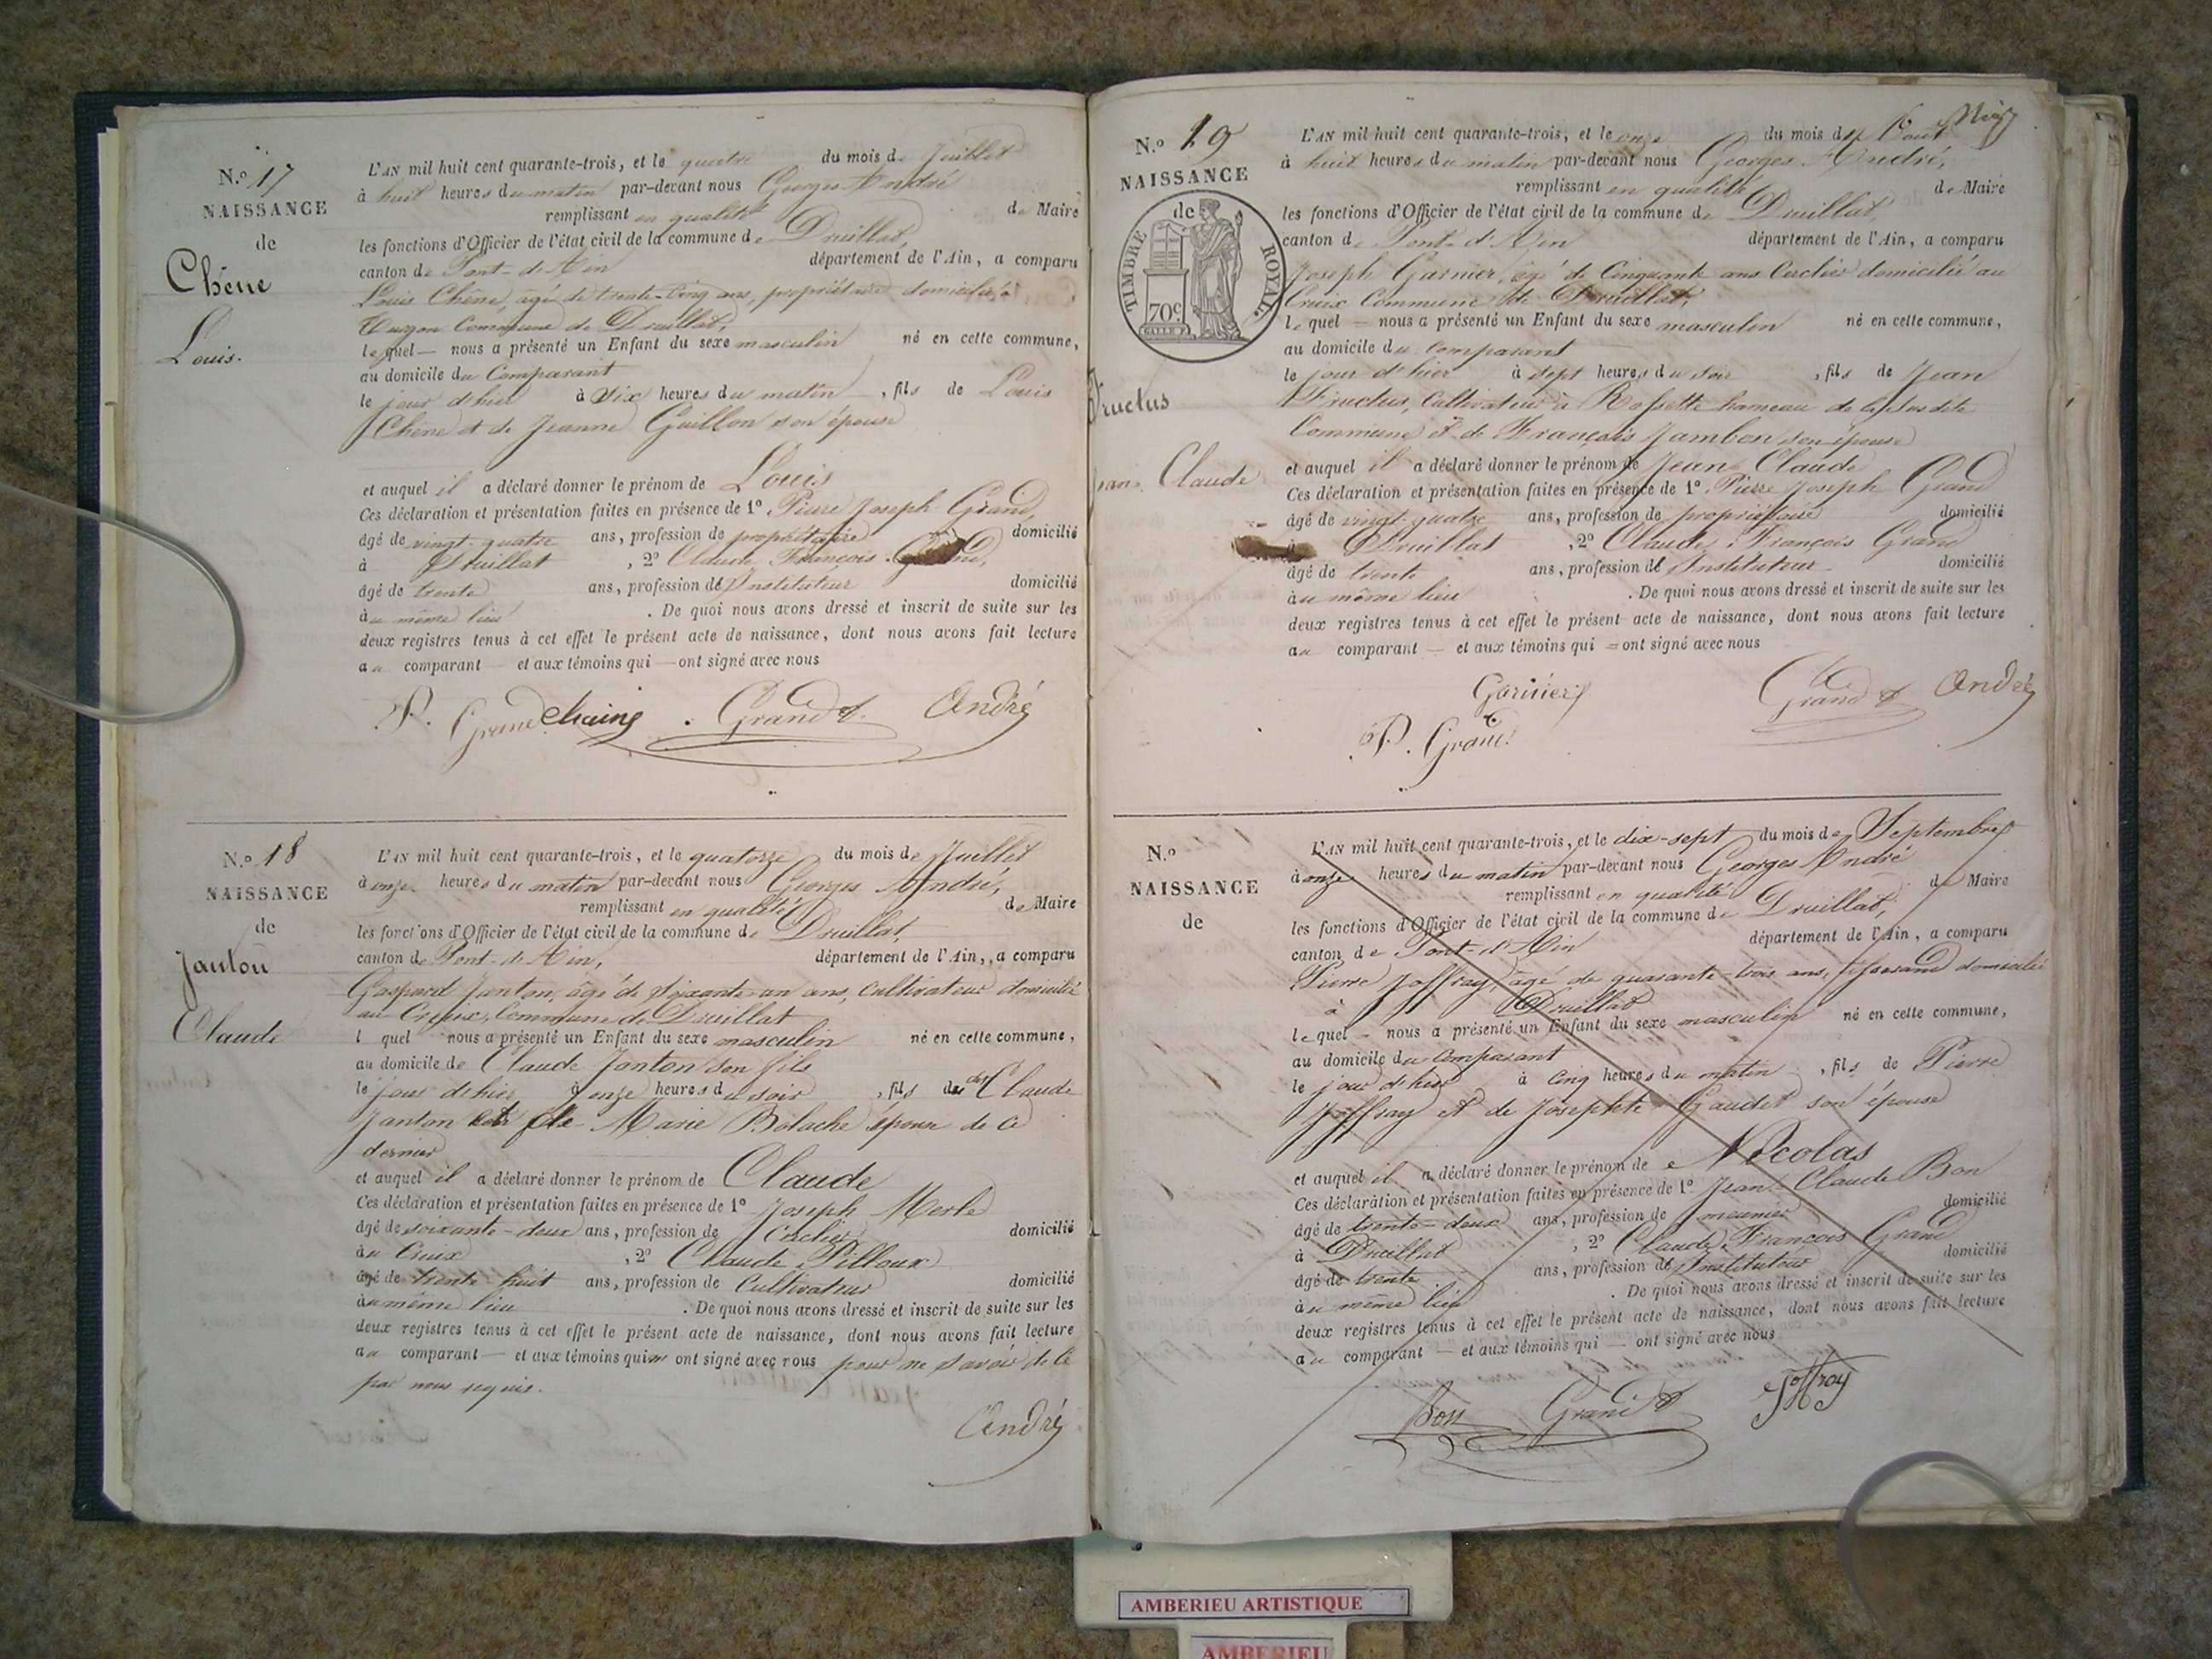 N.º 17
NAISSANCE
de
Chêne
Louis.
L'AN mil huit cent quarante-trois, et le quatre du mois de Juillet
à huit heures du matin par-devant nous Georges André
remplissant en qualité de Maire
les fonctions d'Officier de l'état civil de la commune de Druillat,
canton de Pont-d'Ain département de l'Ain, a comparu
Louis Chêne, âgé de trente-cinq ans, propriétaire domicilié à
Turgon Commune de Druillat,
lequel — nous a présenté un Enfant du sexe masculin né en cette commune,
au domicile du Comparant
le jour d'hier à dix heures du matin, fils de Louis
Chêne et de Jeanne Guillon son épouse
et auquel il a déclaré donner le prénom de Louis
Ces déclaration et présentation faites en présence de 1º Pierre Joseph Grand,
âgé de vingt-quatre ans, profession de propriétaire domicilié
à Druillat, 2º Claude François Grand,
âgé de trente ans, profession d'Instituteur domicilié
au même lieu. De quoi nous avons dressé et inscrit de suite sur les
deux registres tenus à cet effet le présent acte de naissance, dont nous avons fait lecture
au comparant — et aux témoins qui — ont signé avec nous
P. Grand chaine Grand André
N.º 18
NAISSANCE
de
Janton
Claude
L'AN mil huit cent quarante-trois, et le quatorze du mois de Juillet
à onze heures du matin par-devant nous Georges André,
remplissant en qualité de Maire
les fonctions d'Officier de l'état civil de la commune de Druillat,
canton de Pont-d'Ain, département de l'Ain, a comparu
Gaspard Janton, âgé de soixante-un ans, cultivateur domicilié
au Creux, Commune de Druillat
l quel nous a présenté un Enfant du sexe masculin né en cette commune,
au domicile de Claude Janton son fils
le jour d'hier à onze heures du soir, fils de Claude
Janton et de Marie Balache épouse de ce
dernier
et auquel il a déclaré donner le prénom de Claude
Ces déclaration et présentation faites en présence de 1º Joseph Merle
âgé de soixante-deux ans, profession de Cerclier domicilié
au Creux, 2º Claude Pilloux
âgé de trente huit ans, profession de Cultivateur domicilié
au même lieu. De quoi nous avons dressé et inscrit de suite sur les
deux registres tenus à cet effet le présent acte de naissance, dont nous avons fait lecture
au comparant — et aux témoins qui n'ont signé avec nous pour ne savoir de ce
par nous requis.
André
N.º 19
NAISSANCE
de
TIMBRE ROYAL
70c
Fructus
Jean Claude
L'AN mil huit cent quarante-trois, et le onze du mois d'Aout
à huit heures du matin par-devant nous Georges André,
remplissant en qualité de Maire
les fonctions d'Officier de l'état civil de la commune de Druillat,
canton de Pont-d'Ain département de l'Ain, a comparu
Joseph Garnier, âgé de Cinquante ans Cerclier domicilié au
Creux Commune de Druillat,
lequel — nous a présenté un Enfant du sexe masculin né en cette commune,
au domicile du comparant
le jour d'hier à sept heures du soir, fils de Jean
Fructus, cultivateur à Rossette hameau de la susdite
Commune et de François Jambon son épouse
et auquel il a déclaré donner le prénom de Jean Claude
Ces déclaration et présentation faites en présence de 1º Pierre Joseph Grand
âgé de vingt-quatre ans, profession de propriétaire domicilié
à Druillat, 2º Claude François Grand
âgé de trente ans, profession d'Instituteur domicilié
au même lieu. De quoi nous avons dressé et inscrit de suite sur les
deux registres tenus à cet effet le présent acte de naissance, dont nous avons fait lecture
au comparant — et aux témoins qui = ont signé avec nous
Garnier Grand André
P. Grand
N.º
NAISSANCE
de
L'AN mil huit cent quarante-trois, et le dix-sept du mois de Septembre
à onze heures du matin par-devant nous Georges André
remplissant en qualité de Maire
les fonctions d'Officier de l'état civil de la commune de Druillat,
canton de Pont-d'Ain département de l'Ain, a comparu
Pierre Joffray, âgé de quarante-trois ans, tisserand domicilié
à Druillat
lequel — nous a présenté un Enfant du sexe masculin né en cette commune,
au domicile du comparant
le jour d'hier à cinq heures du matin, fils de Pierre
Joffray et de Josephte Gaudet son épouse
et auquel il a déclaré donner le prénom de Nicolas
Ces déclaration et présentation faites en présence de 1º Jean Claude Bon
âgé de trente-deux ans, profession de meunier domicilié
à Druillat, 2º Claude François Grand
âgé de trente ans, profession d'Instituteur domicilié
au même lieu. De quoi nous avons dressé et inscrit de suite sur les
deux registres tenus à cet effet le présent acte de naissance, dont nous avons fait lecture
au comparant — et aux témoins qui — ont signé avec nous
Bon Grand Joffray
AMBERIEU ARTISTIQUE
AMBERIEU